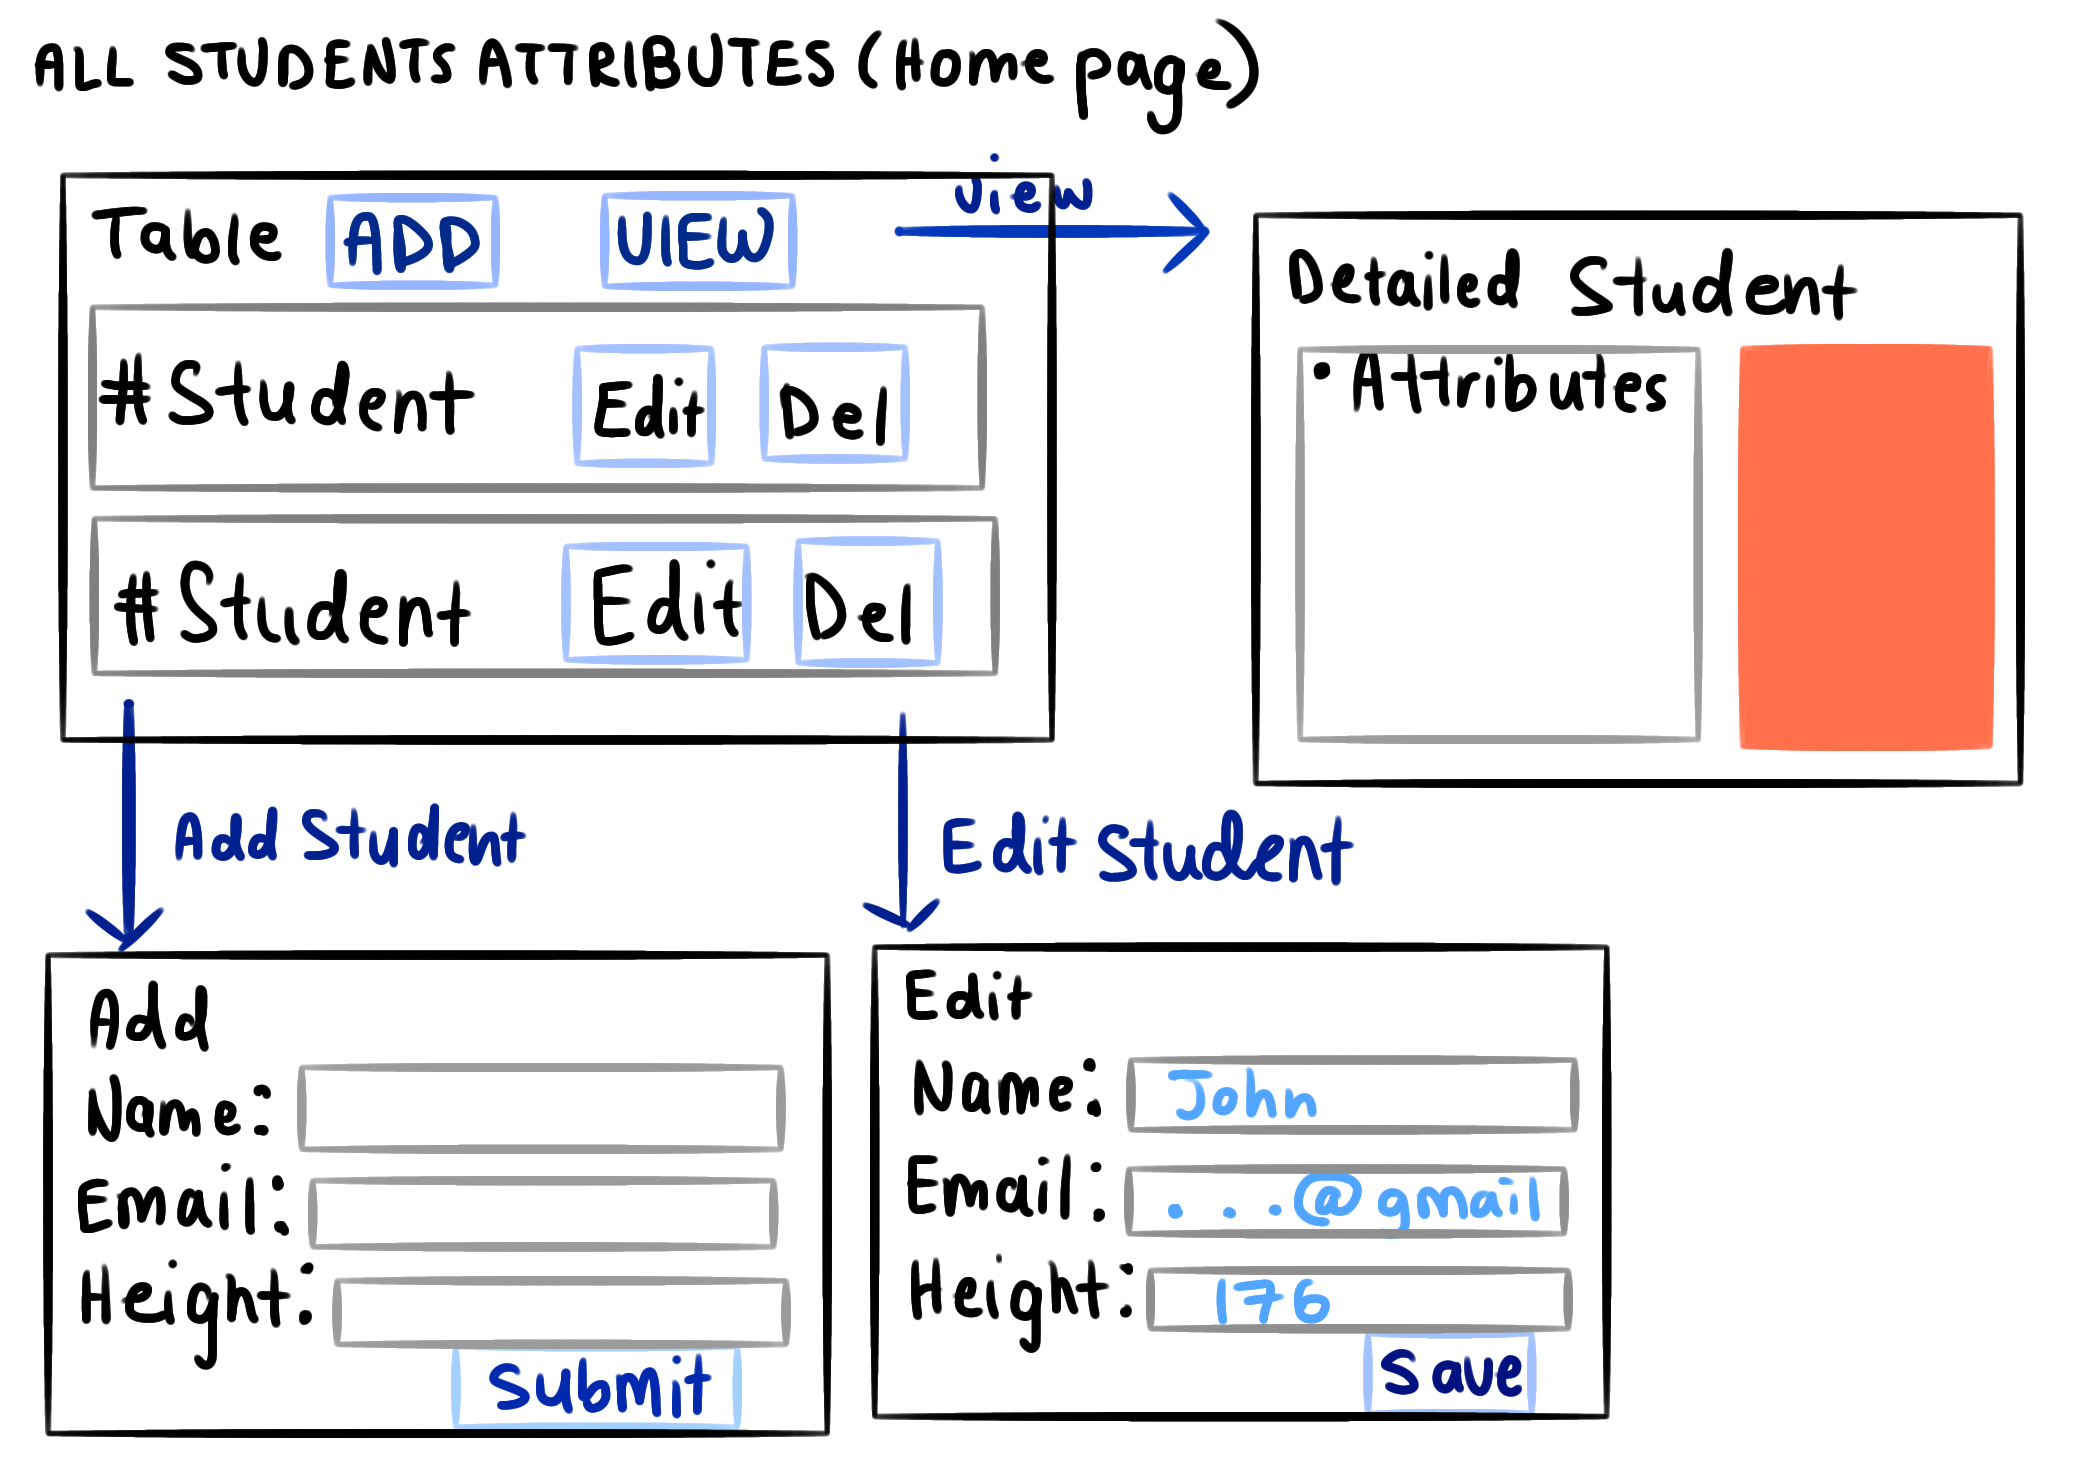 ALL STUDENTS ATTRIBUTES (Home page)
Table ADD VIEW
view
#Student Edit Del
#Student Edit Del
Detailed Student
• Attributes
Add Student
Edit Student
Add
Name:
Email:
Height:
Submit
Edit
Name: John
Email: ...@gmail
Height: 176
Save